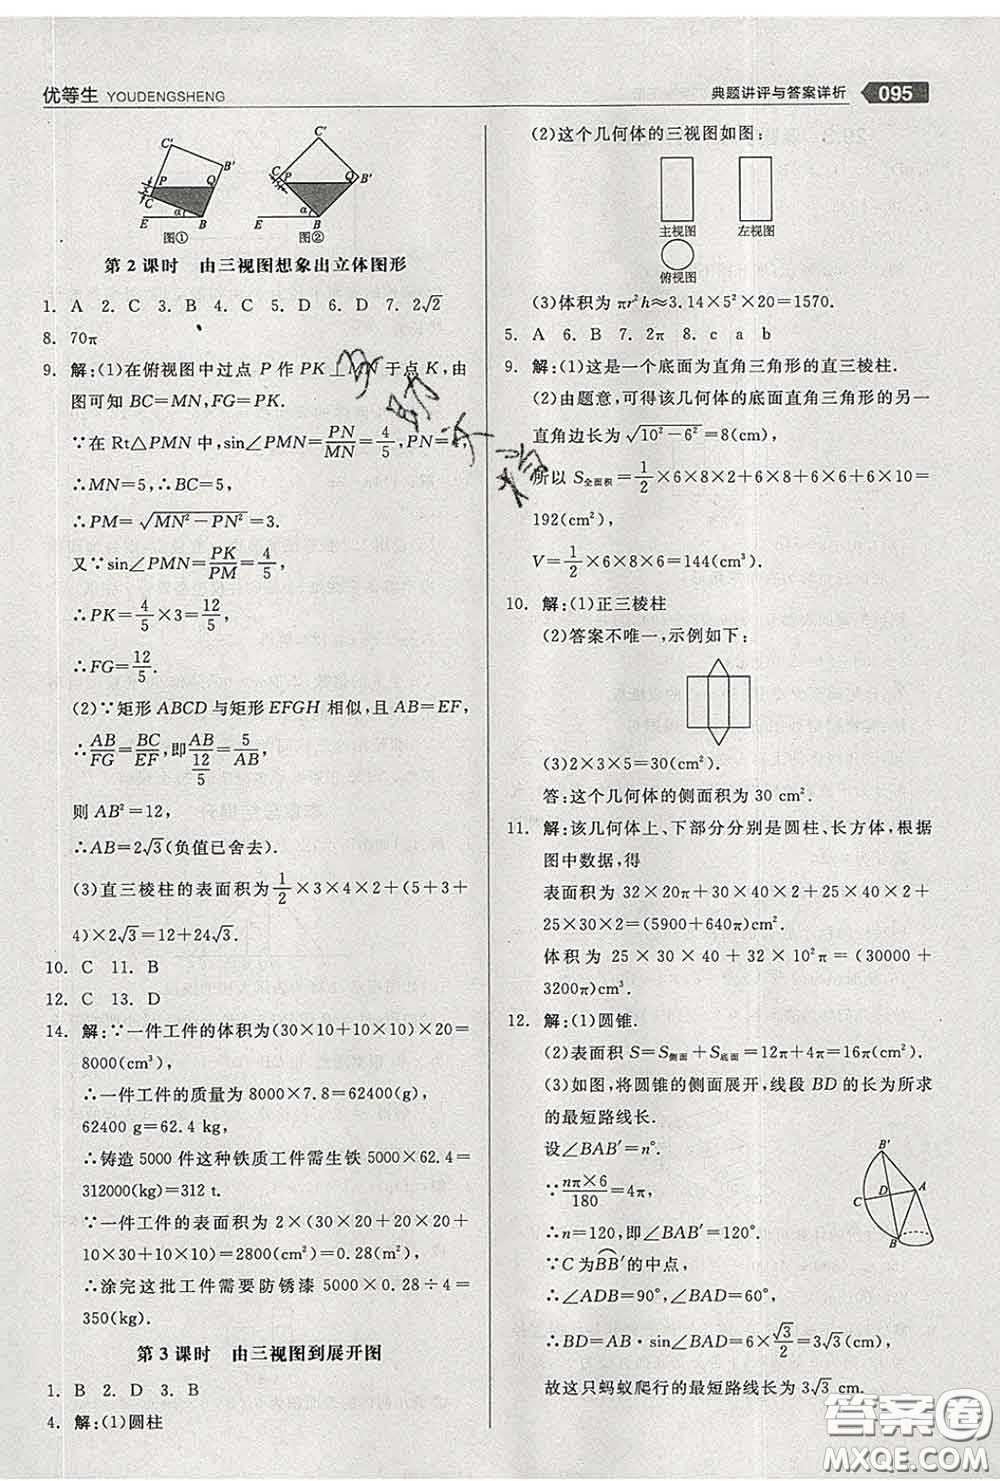 优等生 YOUDENGSHENG
典题讲评与答案详析 095
C′ B′ P Q C α E B
图①
C′ P Q B′ C α E B
图②
第2课时 由三视图想象出立体图形
1. A 2. C 3. B 4. C 5. D 6. D 7. 2√2
8. 70π
9. 解:(1)在俯视图中过点 P 作 PK⊥MN 于点 K,由
图可知 BC=MN,FG=PK.
∵在 Rt△PMN 中,sin∠PMN=PN/MN=4/5,PN=4,
∴MN=5,∴BC=5,
∴PM=√(MN²−PN²)=3.
又∵sin∠PMN=PK/PM=4/5,
∴PK=4/5×3=12/5,
∴FG=12/5.
(2)∵矩形 ABCD 与矩形 EFGH 相似,且 AB=EF,
∴AB/FG=BC/EF,即AB/(12/5)=5/AB,
则 AB²=12,
∴AB=2√3(负值已舍去).
(3)直三棱柱的表面积为1/2×3×4×2+(5+3+
4)×2√3=12+24√3.
10. C 11. B
12. C 13. D
14. 解:∵一件工件的体积为(30×10+10×10)×20=
8000(cm³),
∴一件工件的质量为 8000×7.8=62400(g),
62400 g=62.4 kg,
∴铸造 5000 件这种铁质工件需生铁 5000×62.4=
312000(kg)=312 t.
∵一件工件的表面积为 2×(30×20+20×20+
10×30+10×10)=2800(cm²)=0.28(m²),
∴涂完这批工件需要防锈漆 5000×0.28÷4=
350(kg).
第3课时 由三视图到展开图
1. B 2. D 3. B
4. 解:(1)圆柱
(2)这个几何体的三视图如图:
主视图 左视图
俯视图
(3)体积为 πr²h≈3.14×5²×20=1570.
5. A 6. B 7. 2π 8. c a b
9. 解:(1)这是一个底面为直角三角形的直三棱柱.
(2)由题意,可得该几何体的底面直角三角形的另一
直角边长为√(10²−6²)=8(cm),
所以 S全面积=1/2×6×8×2+8×6+6×6+6×10=
192(cm²),
V=1/2×6×8×6=144(cm³).
10. 解:(1)正三棱柱
(2)答案不唯一,示例如下:
(3)2×3×5=30(cm²).
答:这个几何体的侧面积为 30 cm².
11. 解:该几何体上、下部分分别是圆柱、长方体,根据
图中数据,得
表面积为 32×20π+30×40×2+25×40×2+
25×30×2=(5900+640π)cm²,
体积为 25×30×40+32×10²π=(30000+
3200π)cm³.
12. 解:(1)圆锥.
(2)表面积 S=S侧面+S底面=12π+4π=16π(cm²).
(3)如图,将圆锥的侧面展开,线段 BD 的长为所求
的最短路线长.
设∠BAB′=n°.
∵nπ×6/180=4π,
∴n=120,即∠BAB′=120°.
∵C 为BB′的中点,
∴∠ADB=90°,∠BAD=60°,
∴BD=AB·sin∠BAD=6×√3/2=3√3(cm).
故这只蚂蚁爬行的最短路线长为 3√3 cm.
B′ C D A B
答案圈
MXQE.COM